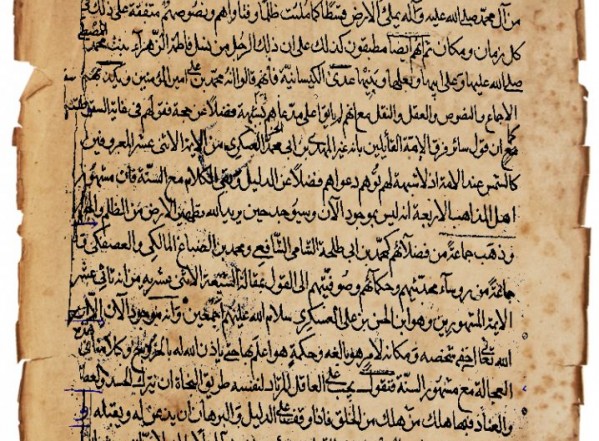 من آل محمد صلى الله عليه وآله يملك الارض قسطا كما ملئت ظلما وفتاواهم ونصوصهم متفقة على ذلك في
كل زمان ومكان بل هم ايضا مطبقون كذلك على ان ذلك الرجل من نسل فاطمة الزهراء بنت محمد المصطفى
صلى الله عليها وعلى ابيها وبعلها وبنيها عدى الكيسانية فانهم قالوا انه محمد بن على امير المؤمنين ويكذبهم
الاجماع والنصوص والعقل والنقل مع انهم لم يأتوا على مدعاهم بشبهة فضلا عن حجة فقولهم في غاية السقوط
كما ان قول سائر فرق الامة القائلين بانه غير المهدى بن ابى محمد العسكرى من الايمة الاثنى عشر المعروفين
كالشمس عند الامة اذ لا شبهة لهم تؤهم دعواهم فضلا عن الدليل وبقى الكلام مع السنة فان مشهور
اهل المذاهب الاربعة انه ليس بموجود الآن وسيوجد حين يريد الله تطهير الارض من الظلم
وذهب جماعة من فضلائهم كمحمد بن ابى طلحة الشامى الشافعى ومحمد بن الصباغ المالكى والحصفكى
جماعة من رؤساء محدثيهم وحكمائهم وصوفيتهم الى القول بمقالة الشيعة الاثنى عشرية من انه ثانى عشر
الايمة المشهورين وهو ابن الحسن بن على العسكرى سلام الله عليهم اجمعين وانه موجود الآن الا ان
الله تعالى اخفى شخصه ومكانه لامر هو بالغه وحكمة هو اعلم بها حتى ياذن الله له بالخروج وكلامنا في
العجالة مع مشهور السنة فنقول يجب على العاقل المرتاد لنفسه طريق النجاة ان يترك الحسد
والعناد فبها هلك من هلك من الخلق فاذا وقف على الدليل والبرهان ان يذعن له ويقبله